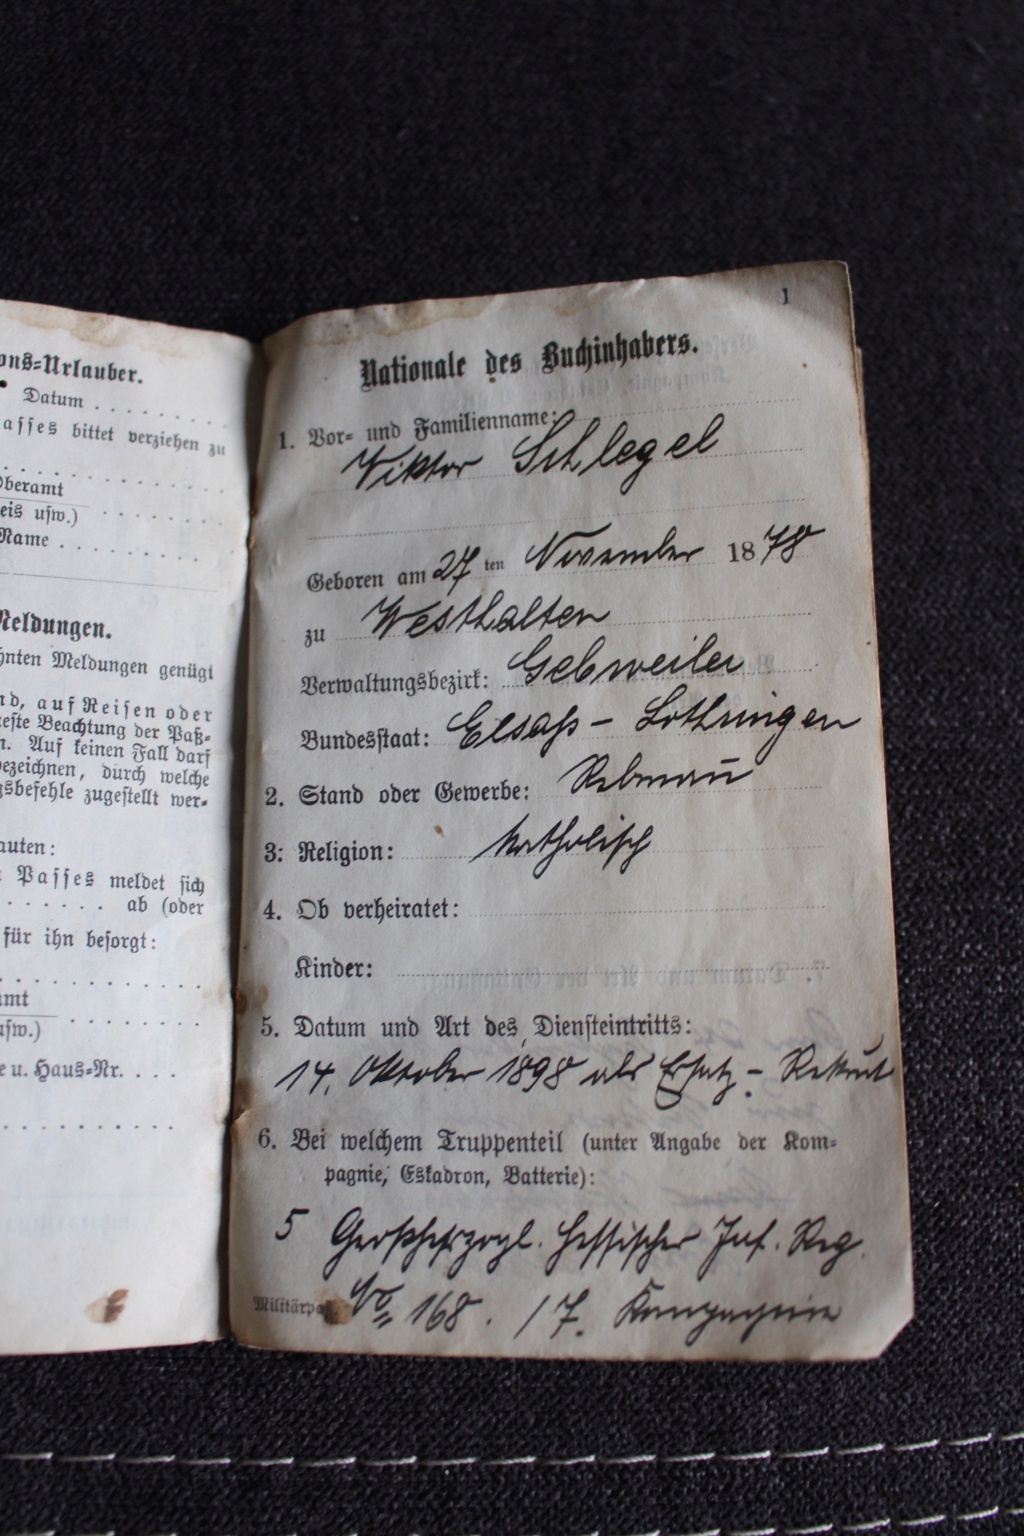 ons-Urlauber.
Datum
asses bittet verziehen zu
Oberamt
eis usw.)
Name
Meldungen.
hnten Meldungen genügt
nd, auf Reisen oder
este Beachtung der Paß-
n. Auf keinen Fall darf
bezeichnen, durch welche
gsbefehle zugestellt wer-
auten:
Passes meldet sich
ab (oder
für ihn besorgt:
amt
usw.)
e u. Haus-Nr.
1
Nationale des Buchinhabers.
1. Vor- und Familienname:
Viktor Schlegel
Geboren am 27 ten November 1878
zu Westhalten
Verwaltungsbezirk: Gebweiler
Bundesstaat: Elsaß-Lothringen
2. Stand oder Gewerbe: Rebmann
3: Religion: katholisch
4. Ob verheiratet:
Kinder:
5. Datum und Art des Diensteintritts:
14. Oktober 1898 als Ersatz-Rekrut
6. Bei welchem Truppenteil (unter Angabe der Kom-
pagnie, Eskadron, Batterie):
5 Großherzogl. Hessischer Inf. Reg.
Militärpaß. No 168. / 7. Kompagnie